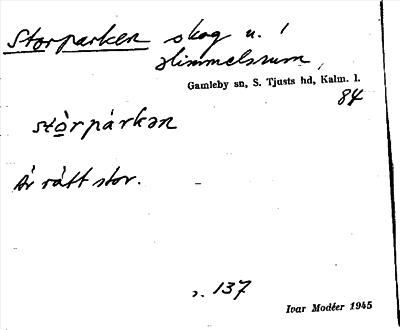 Storparken skog u. !
Himmelsrum,
Gamleby sn, S. Tjusts hd, Kalm. l.
84
stò̱rpárkən
Är rätt stor.
s. 137
Ivar Modéer 1945